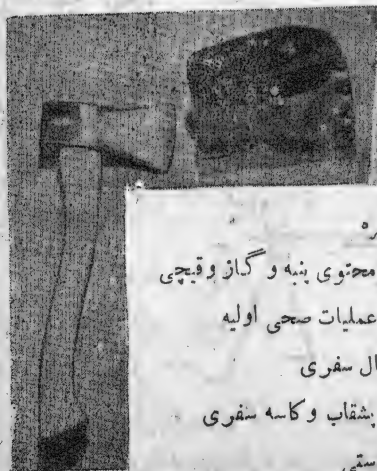 محتوی پنبه و گاز و قیچی
عملیات صحی اولیه
سفری
بشقاب و کاسه سفری